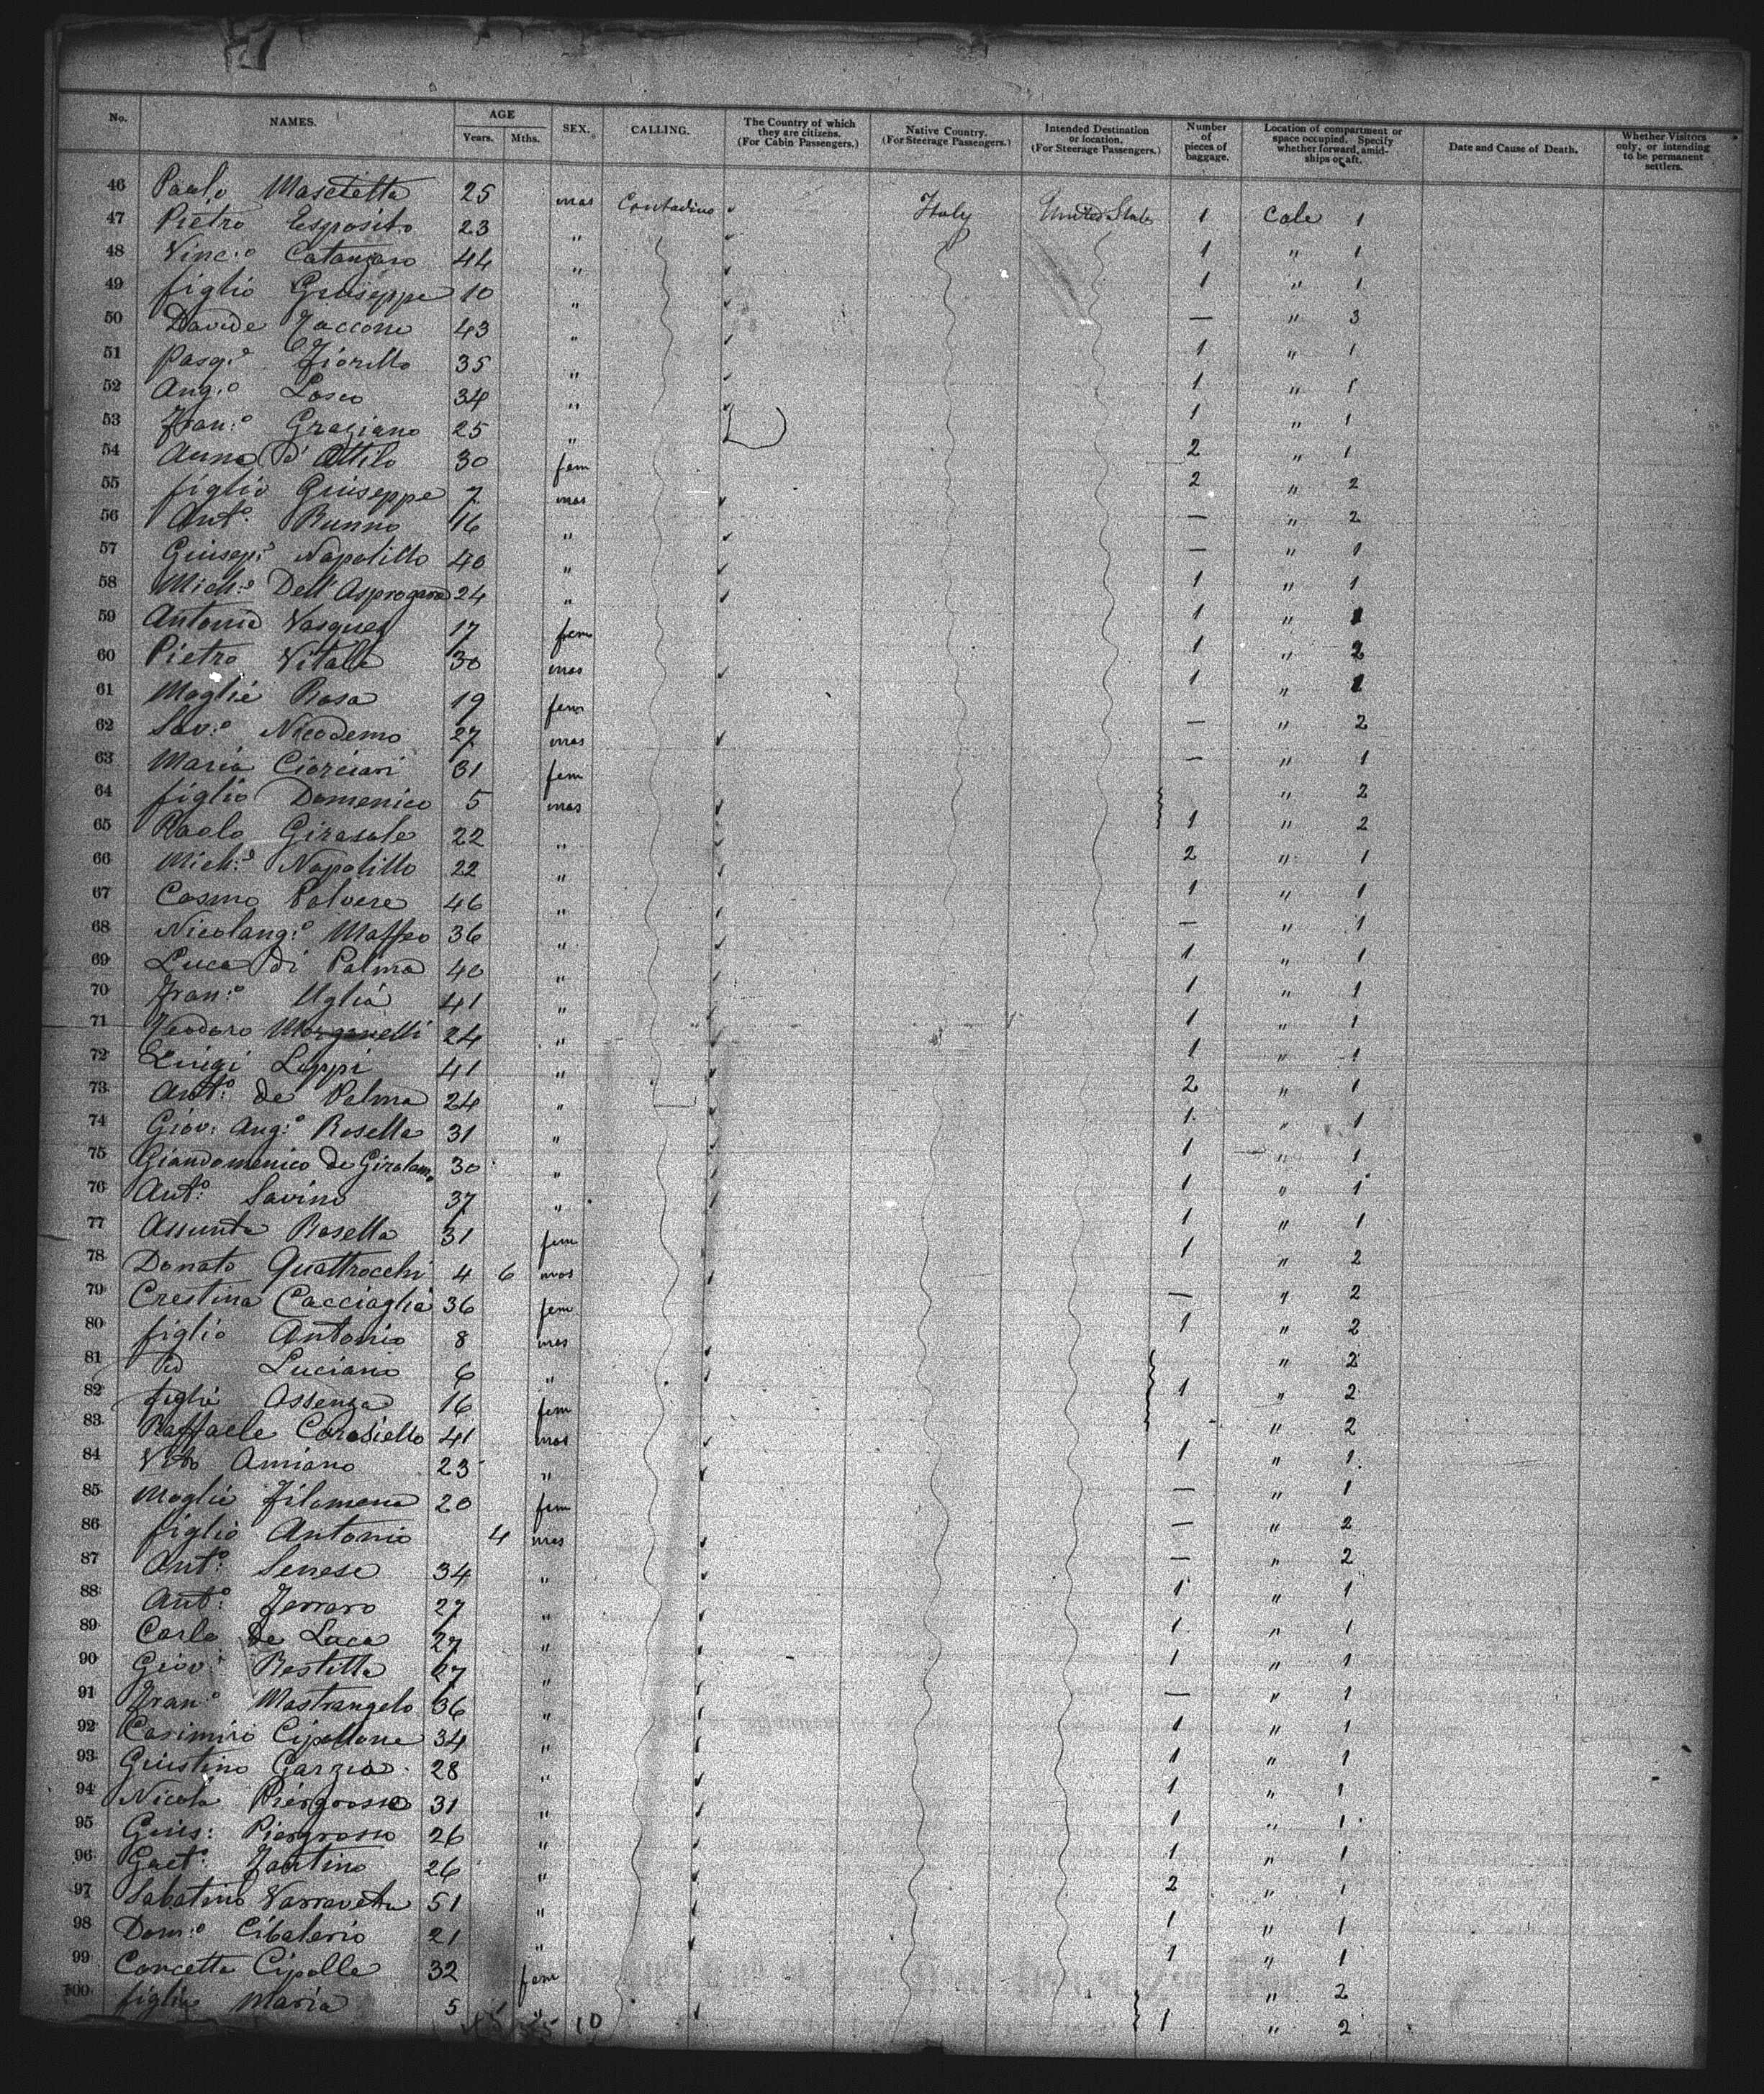 No. NAMES. AGE Years. Mths. SEX. CALLING. The Country of which they are citizens. (For Cabin Passengers.) Native Country. (For Steerage Passengers.) Intended Destination or location. (For Steerage Passengers.) Number of pieces of baggage. Location of compartment or space occupied. Specify whether forward, amidships or aft. Date and Cause of Death. Whether Visitors only, or intending to be permanent settlers.
46 Paolo 25 mas Contadino Italy United States 1 Cale 1
47 Pietro Esposito 23 " 1 " 1
48 Vinc:o Catanzaro 44 " 1 " 1
49 figlio Giuseppe 10 " — " 3
50 Davide 43 " 1 " 1
51 Pasq:e Fiorillo 35 " 1 " 1
52 Ang:o Losco 34 " 1 " 1
53 Fran:o Graziano 25 " 2 " 1
54 Anna d'Attilo 30 fem 2 " 2
55 figlio Giuseppe 7 mas — " 2
56 Ant:o Runno 16 " — " 1
57 Giusep:e Napolillo 40 " 1 " 1
58 Mich:e Dell 24 " 1 "
59 Antonia Vasques 17 fem 1 " 2
60 Pietro Vitale 30 mas 1 "
61 Moglie Rosa 19 fem — " 2
62 Sav:o Nicodemo 27 mas — " 1
63 Maria Ciorciari 31 fem " 2
64 figlio Domenico 5 mas 1 " 2
65 Paolo Girasole 22 " 2 " 1
66 Mich:e Napolillo 22 " 1 " 1
67 Cosmo Polvere 46 " — " 1
68 Nicolang:o Maffeo 36 " 1 " 1
69 Luca di Palma 40 " 1 " 1
70 Fran:o Uglia 41 " 1 " 1
71 Teodoro Morganelli 24 " 1 " 1
72 Luigi Luppi 41 " 2 " 1
73 Ant:o de Palma 24 " 1 " 1
74 Giov: Ang:o Rosella 31 " 1 " 1
75 Giandomenico de Girolamo 30 " 1 " 1
76 Ant:o Savino 37 " 1 " 1
77 Assunta Rosella 31 fem 1 " 2
78 Donato Quattrocchi 4 6 mas — " 2
79 Crestina Cacciaglia 36 fem 1 " 2
80 figlio Antonio 8 mas " 2
81 id Luciano 6 " 1 " 2
82 figlia Assenza 16 fem " 2
83 Raffaele Carosiello 41 mas 1 " 1
84 Vito Amiano 23 " — " 1
85 Moglie Filomena 20 fem — " 2
86 figlio Antonio 4 mas — " 2
87 Ant:o Senese 34 " 1 " 1
88 Ant:o Ferraro 27 " 1 " 1
89 Carlo de Luca 27 " 1 " 1
90 Giov: Restilla 27 " — " 1
91 Fran:o Mastrangelo 36 " 1 " 1
92 Casimiro Cipollone 34 " 1 " 1
93 Giustino Garzia 28 " 1 " 1
94 Nicola Piergrosso 31 " 1 " 1
95 Gius: Piergrosso 26 " 1 " 1
96 Gaet:o Fantino 26 " 2 " 1
97 Sabatino 51 " 1 " 1
98 Dom:o Cibalerio 21 " 1 " 1
99 Concetta Cipolla 32 fem " 2
100 figlia Maria 5 " 1 " 2
10